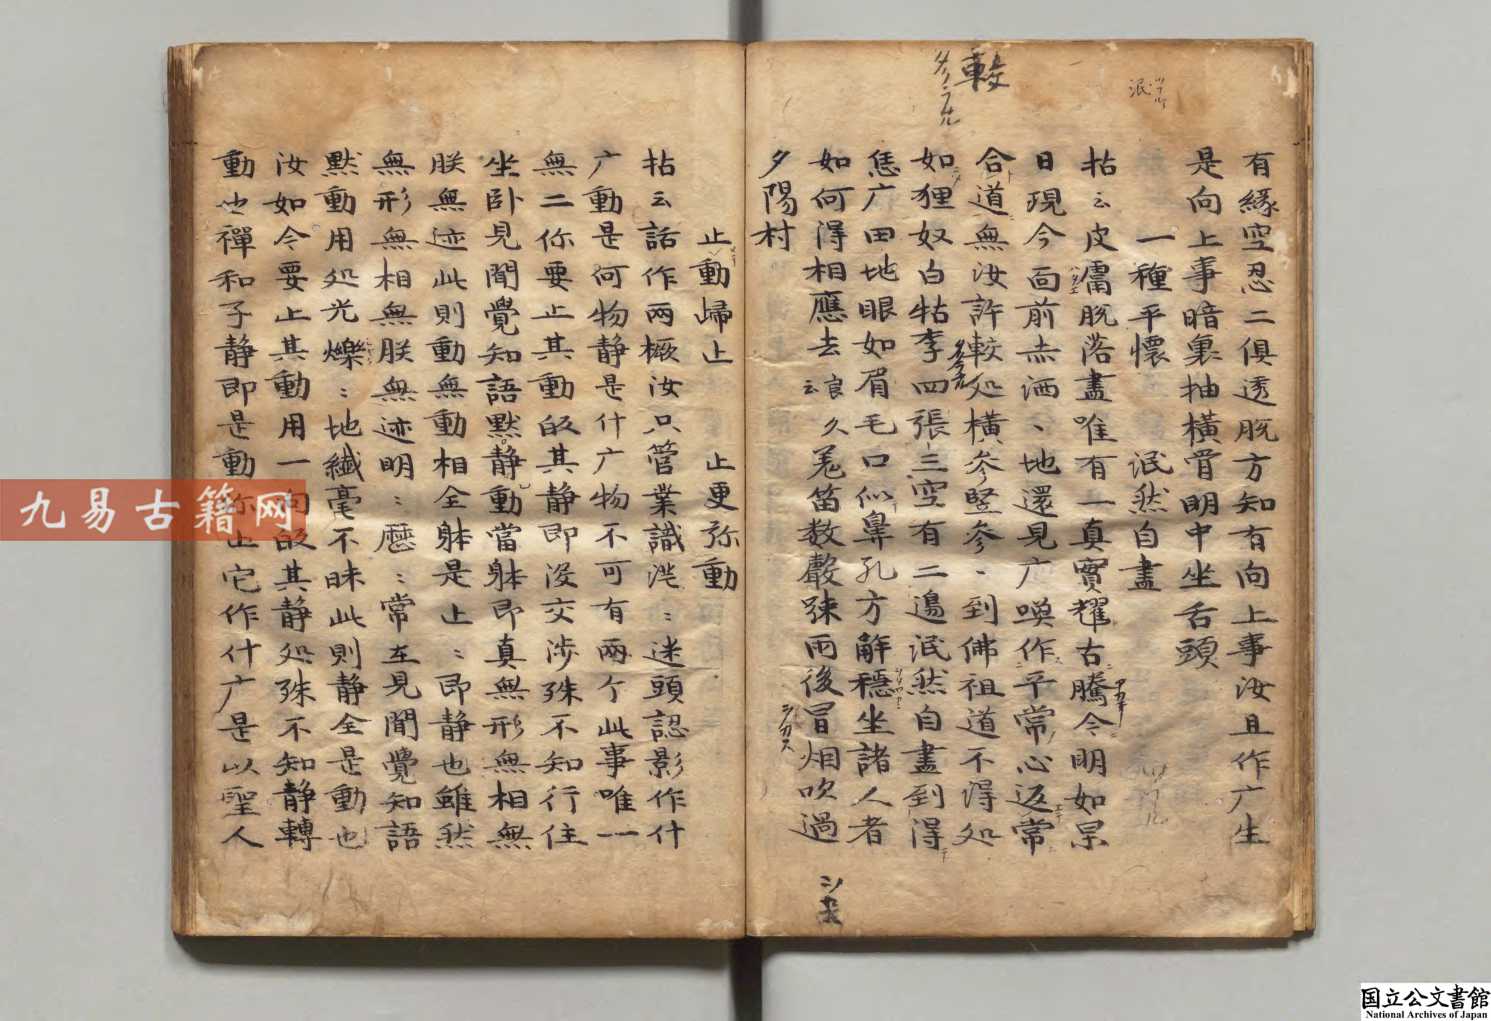 有緣空忍二俱透脫方知有向上事汝且作广生
是向上事暗裏抽橫骨明中坐舌頭
一種平懷　泯然自盡
拈云皮膚脫落盡唯有一真實耀古騰今明如杲
日現今面前赤洒〻地還見广喚作平常心返常
合道無汝許較処橫参竪参〻到佛祖道不得処
如狸奴白牯李四張三空有二邊泯然自盡到得
恁广田地眼如眉毛口似鼻孔方解穩坐諸人者
如何得相應去良久云羌笛数聲踈雨後冒烟吹過
夕陽村
止動歸止　止更弥動
拈云話作兩橛汝只管業識茫〻迷頭認影作什
广動是何物静是什广物不可有兩个此事唯一
無二你要止其動的其静即没交渉殊不知行住
坐卧見聞覺知語黙静動當躰即真無形無相無
朕無迹此則動無動相全躰是止〻即静也雖然
無形無相無朕無迹明〻歷〻常在見聞覺知語
黙動用処光爍〻地纎毫不昧此則静全是動也
汝如今要止其動用一向的其静処殊不知静轉
動也禪和子静即是動你止它作什广是以聖人
較
泯
九易古籍网
国立公文書館
National Archives of Japan